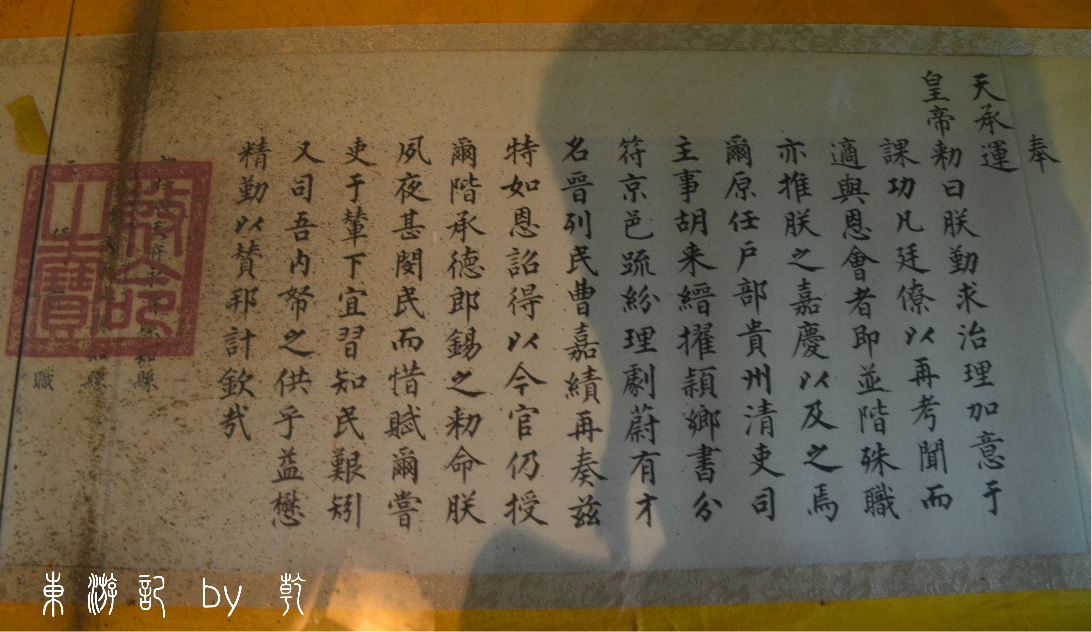 奉
天承運
皇帝勑曰朕勤求治理加意于
課功凡廷僚以再考聞而
適與恩會者即並階殊職
亦推朕之嘉慶以及之焉
爾原任戶部貴州清吏司
主事胡来縉擢頴鄉書分
符京邑疏紛理劇蔚有才
名晉列民曹嘉績再奏兹
特如恩詔得以今官仍授
爾階承德郎錫之勑命朕
夙夜甚閔民而惜賦爾嘗
吏于輦下宜習知民艱矧
又司吾内帑之供乎益懋
精勤以賛邦計欽哉
知縣
縣
職
敕命之寶
東游記 by 乾